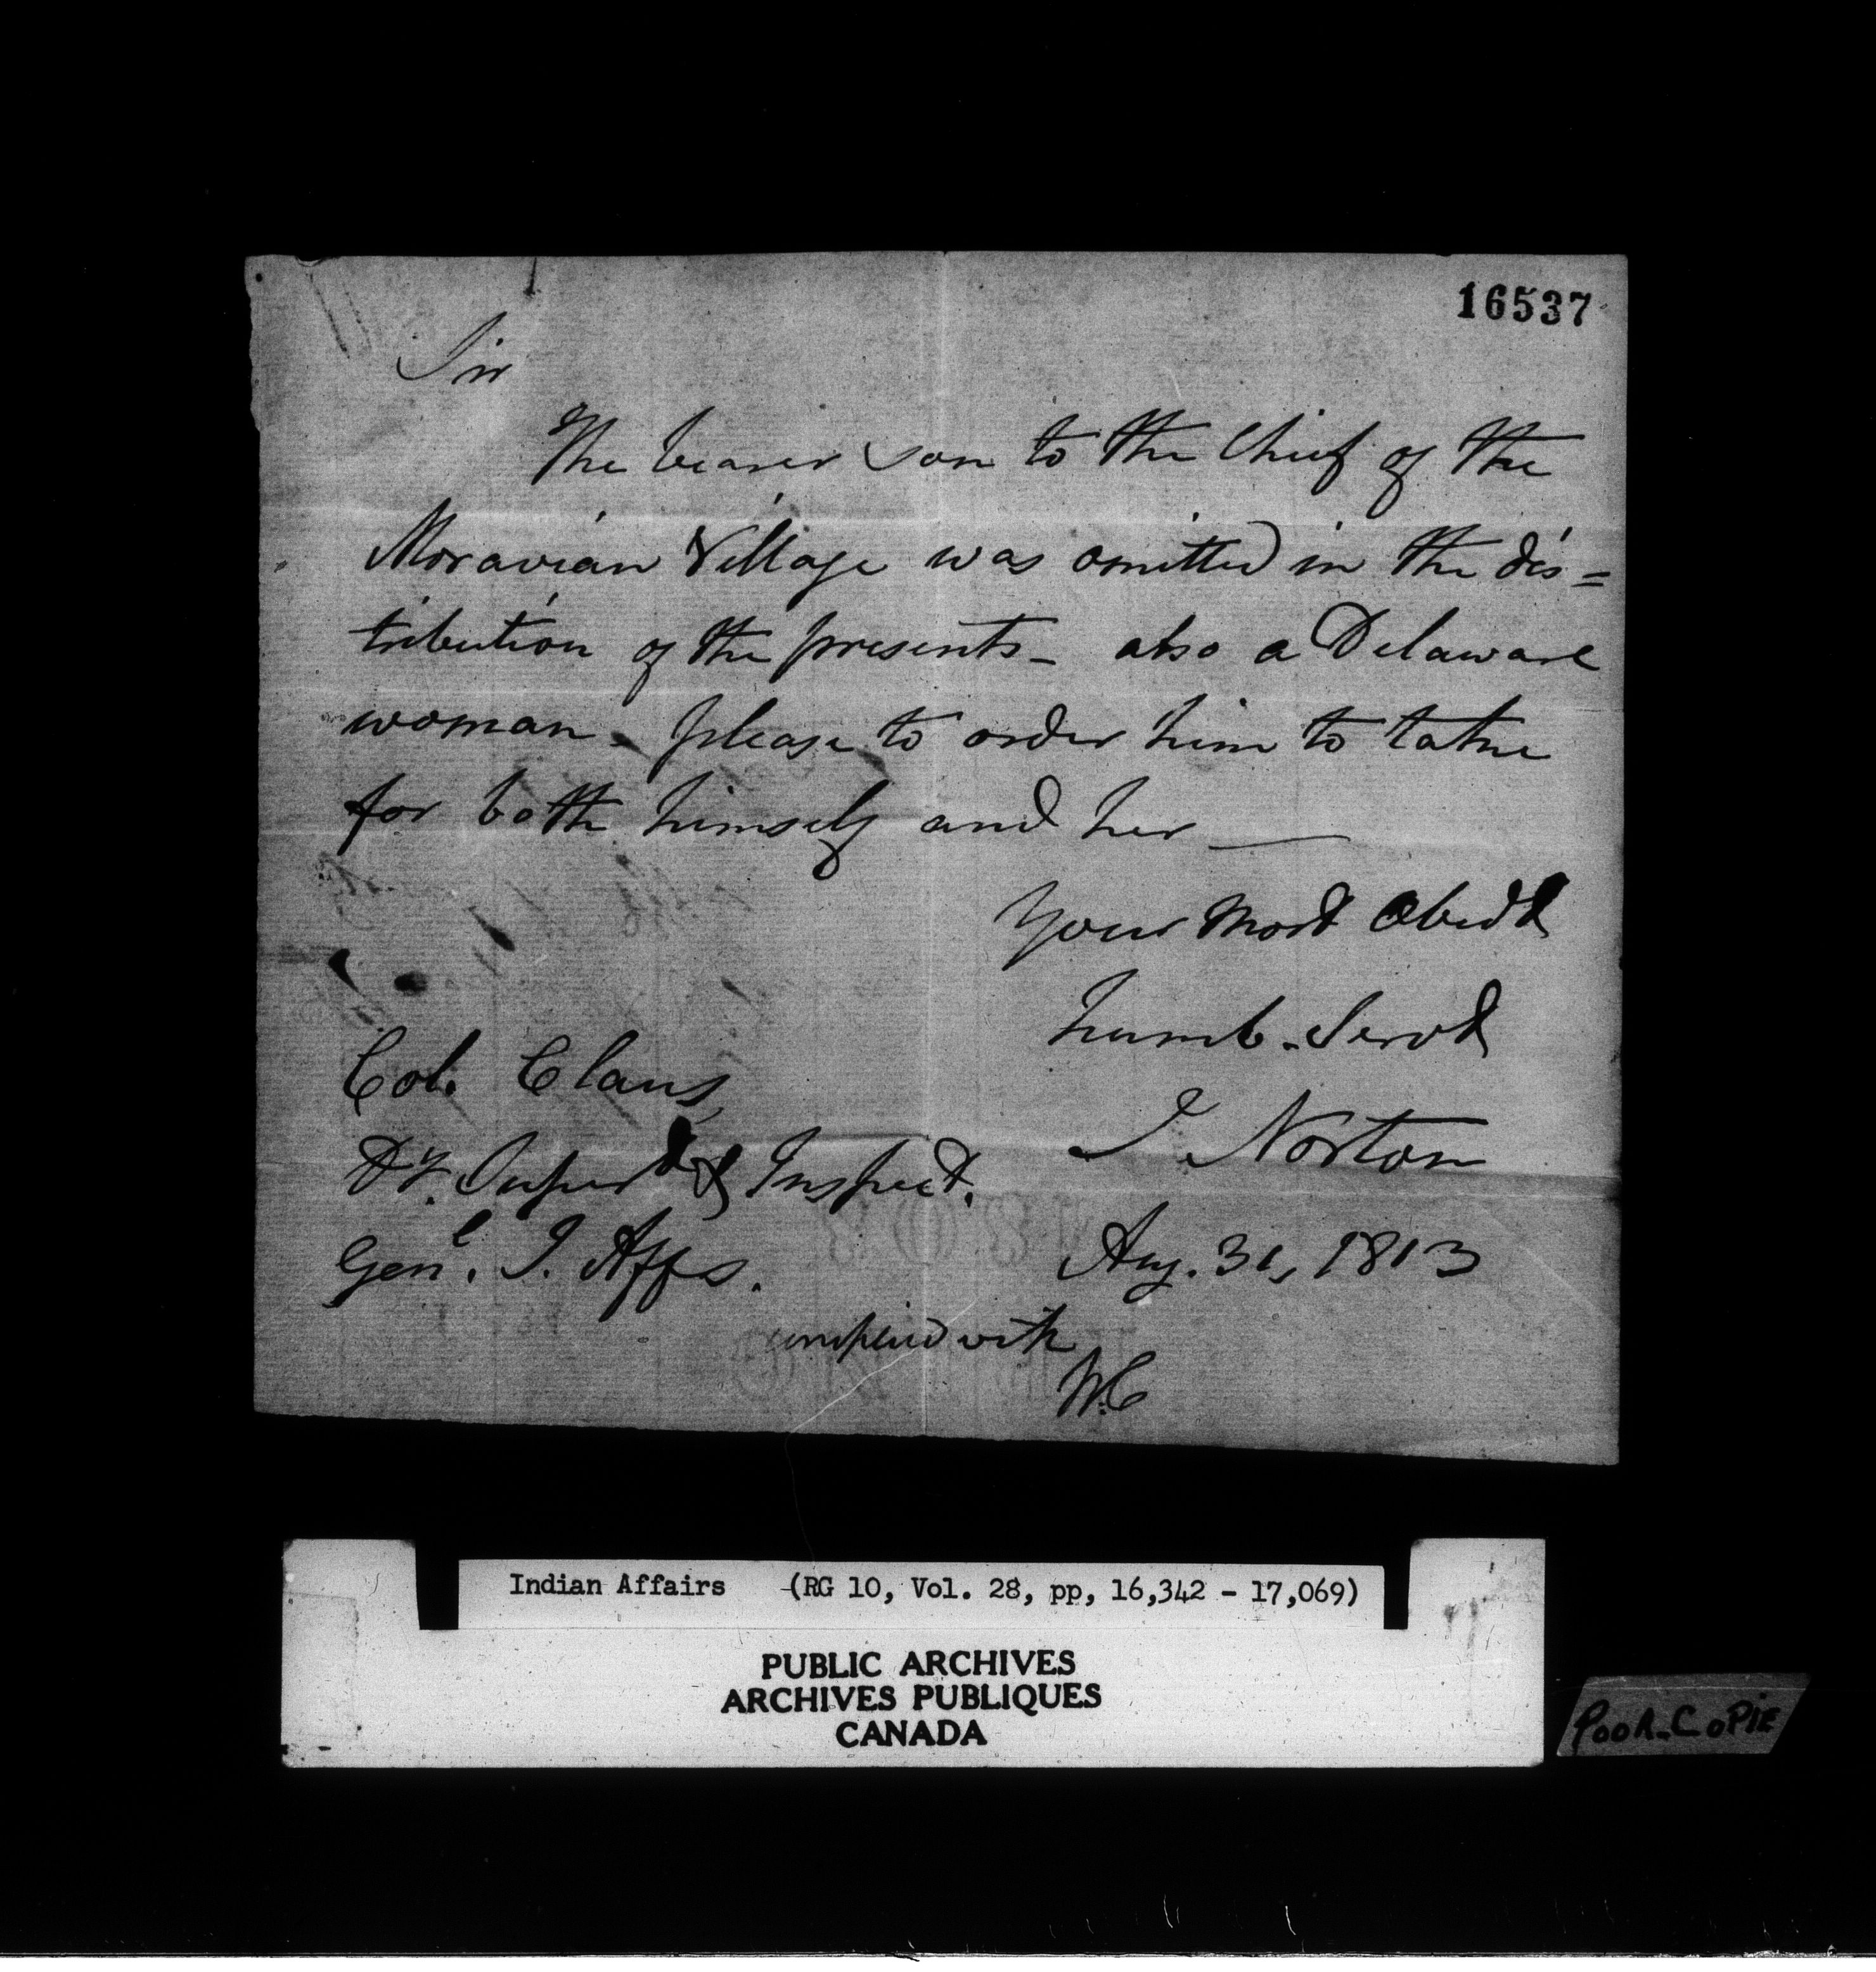 16537
Sir
The bearer son to the Chief of the
Moravian Village was omitted in the dis=
tribution of the presents - also a Delaware
woman - please to order him to take
for both himself and her —
Your Most Obedt
humb. Servt
J Norton
Col. Claus,
Dy. Superdt & Inspect.
Genl. I. Affs.
Aug. 31, 1813
complied with
WC
Indian Affairs (RG 10, Vol. 28, pp, 16,342 - 17,069)
PUBLIC ARCHIVES
ARCHIVES PUBLIQUES
CANADA
POOR-COPIE